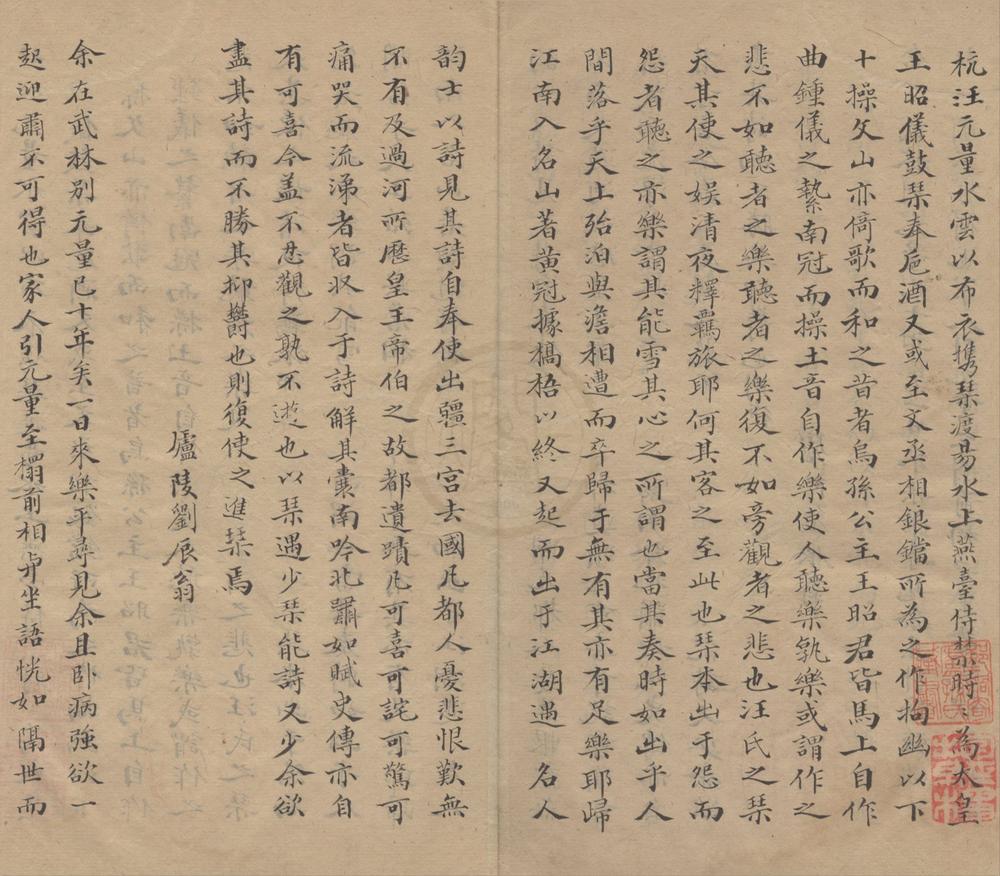 杭汪元量水雲以布衣携琴渡易水上燕臺侍禁時〻為太皇
王昭儀鼓琴奉巵酒又或至文丞相銀鐺所為之作拘幽以下
十操文山亦倚歌而和之昔者烏孫公主王昭君皆馬上自作
曲鍾儀之縶南冠而操土音自作樂使人聽樂孰樂或謂作之
悲不如聽者之樂聽者之樂復不如旁觀者之悲也汪氏之琴
天其使之娱清夜釋羈旅耶何其客之至此也琴本出于怨而
怨者聽之亦樂謂其能雪其心之所謂也當其奏時如出乎人
間落乎天上殆泊與澹相遭而卒歸于無有其亦有足樂耶歸
江南入名山著黄冠據槁梧以終又起而出于江湖遇名人
韵士以詩見其詩自奉使出疆三宫去國凡都人憂悲恨歎無
不有及過河所歷皇王帝伯之故都遺蹟凡可喜可詫可驚可
痛哭而流涕者皆収入于詩解其囊南吟北嘯如賦史傳亦自
有可喜今盖不忍觀之孰不遊也以琴遇少琴能詩又少余欲
盡其詩而不勝其抑鬱也則復使之進琴焉
廬陵劉辰翁
余在武林别元量已十年矣一日來樂平尋見余且卧病強欲一
起迎肅不可得也家人引元量至榻前相弔坐語恍如隔世而